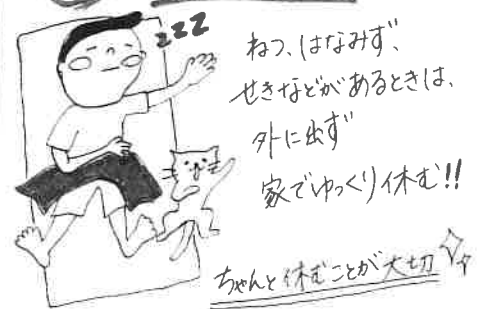 zzz
ねつ、はなみず、
せきなどがあるときは、
外に出ず
家でゆっくり休む!!
ちゃんと休むことが大切